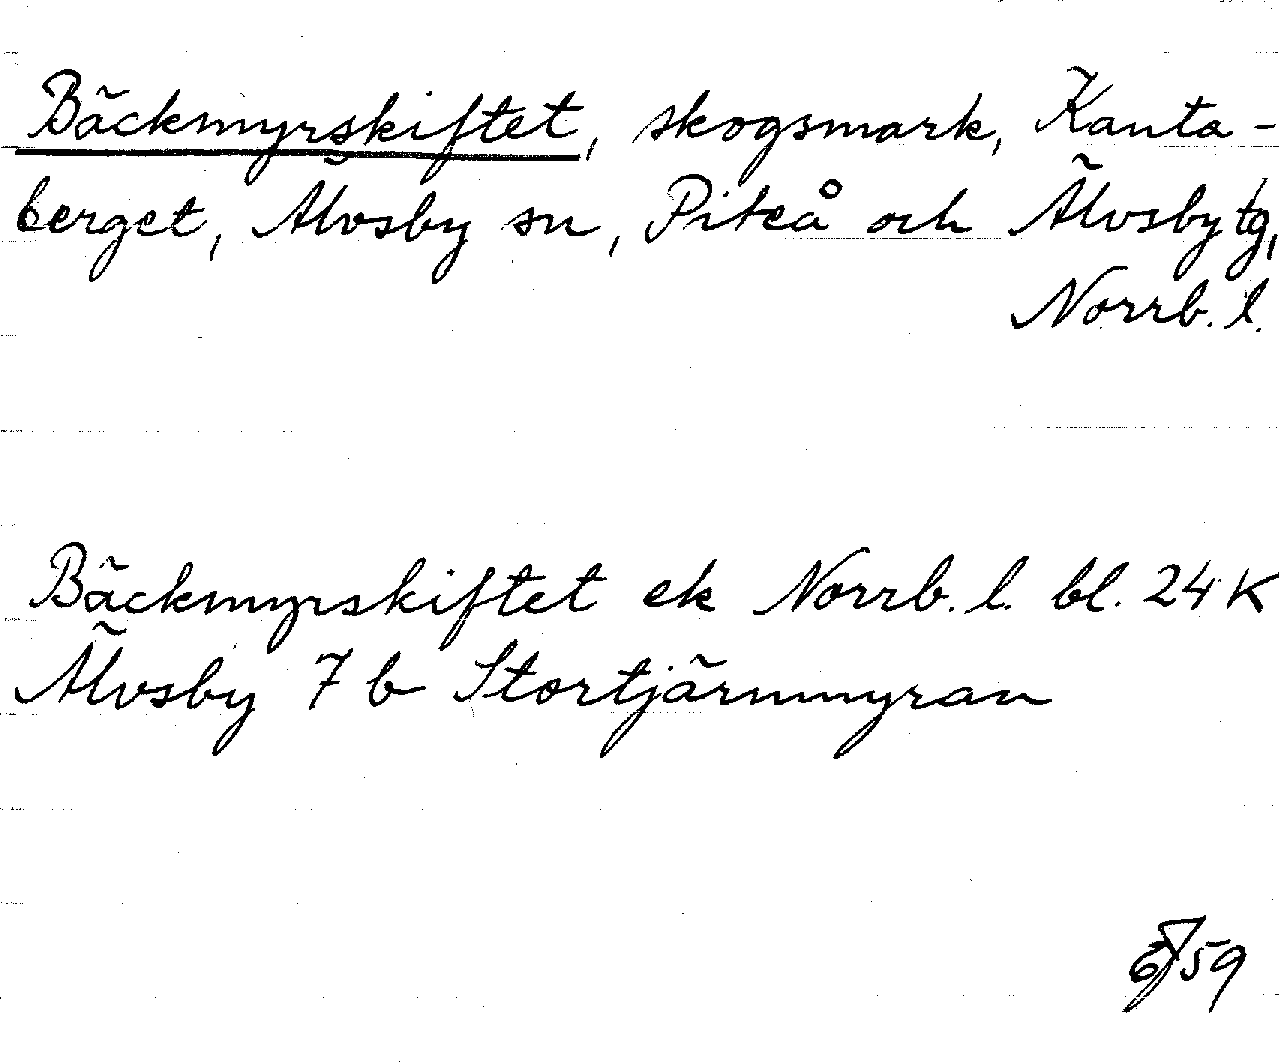 Bäckmyrskiftet, skogsmark, Kanta-
berget, Älvsby sn, Piteå och Älvsby tg,
Norrb. l.
Bäckmyrskiftet ek Norrb. l. bl. 24 K
Älvsby 7 b Stortjärnmyran
59